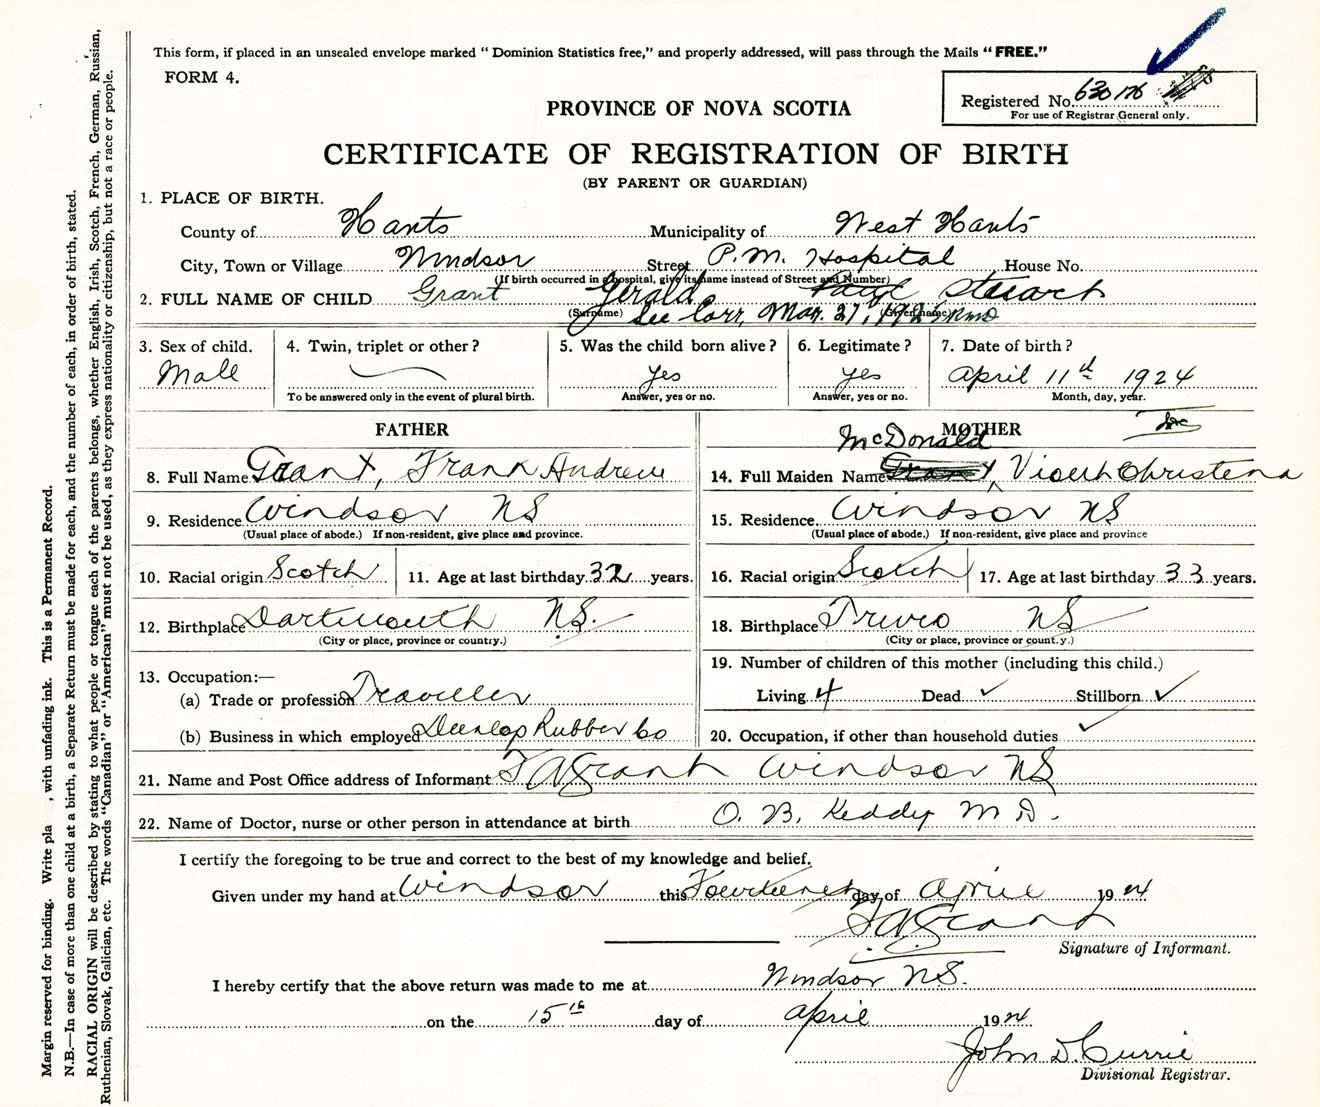 This form, if placed in an unsealed envelope marked “ Dominion Statistics free,” and properly addressed, will pass through the Mails “ FREE.”
FORM 4.
Registered No. 630176
For use of Registrar General only.
PROVINCE OF NOVA SCOTIA
CERTIFICATE OF REGISTRATION OF BIRTH
(BY PARENT OR GUARDIAN)
1. PLACE OF BIRTH.
County of Hants Municipality of West Hants
City, Town or Village Windsor Street P.M. Hospital House No.
(If birth occurred in a hospital, give its name instead of Street and Number)
2. FULL NAME OF CHILD Grant Gerald Stuart
(Surname) See Corr, Mar. 27, (Given name)
3. Sex of child. 4. Twin, triplet or other ? 5. Was the child born alive ? 6. Legitimate ? 7. Date of birth ?
Male yes yes April 11th 1924
To be answered only in the event of plural birth. Answer, yes or no. Answer, yes or no. Month, day, year.
FATHER MOTHER
McDonald
8. Full Name Grant, Frank Andrew 14. Full Maiden Name Christena
9. Residence Windsor NS 15. Residence. Windsor NS
(Usual place of abode.) If non-resident, give place and province. (Usual place of abode.) If non-resident, give place and province
10. Racial origin Scotch 11. Age at last birthday 32 years. 16. Racial origin Scotch 17. Age at last birthday 33 years.
12. Birthplace Dartmouth N.S. 18. Birthplace Truro NS
(City or place, province or country.) (City or place, province or country.)
13. Occupation:— 19. Number of children of this mother (including this child.)
(a) Trade or profession Traveller Living 4 Dead ✓ Stillborn ✓
(b) Business in which employed Dunlop Rubber Co 20. Occupation, if other than household duties ✓
21. Name and Post Office address of Informant F A Grant Windsor NS
22. Name of Doctor, nurse or other person in attendance at birth O. B. Keddy M D.
I certify the foregoing to be true and correct to the best of my knowledge and belief.
Given under my hand at Windsor this Fourteenth day of April 1924
F A Grant
Signature of Informant.
I hereby certify that the above return was made to me at Windsor N.S.
on the 15th day of April 1924
John D. Currie
Divisional Registrar.
Margin reserved for binding. Write pla , with unfading ink. This is a Permanent Record.
N.B.—In case of more than one child at a birth, a Separate Return must be made for each, and the number of each, in order of birth, stated.
RACIAL ORIGIN will be described by stating to what people or tongue each of the parents belongs, whether English, Irish, Scotch, French, German, Russian,
Ruthenian, Slovak, Galician, etc. The words “Canadian” or “American” must not be used, as they express nationality or citizenship, but not a race or people.